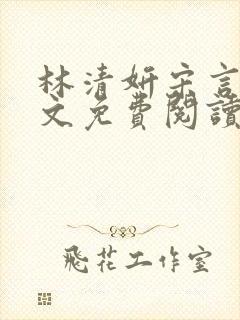 林清妍宋言
文免費閱讀
飛花工作室